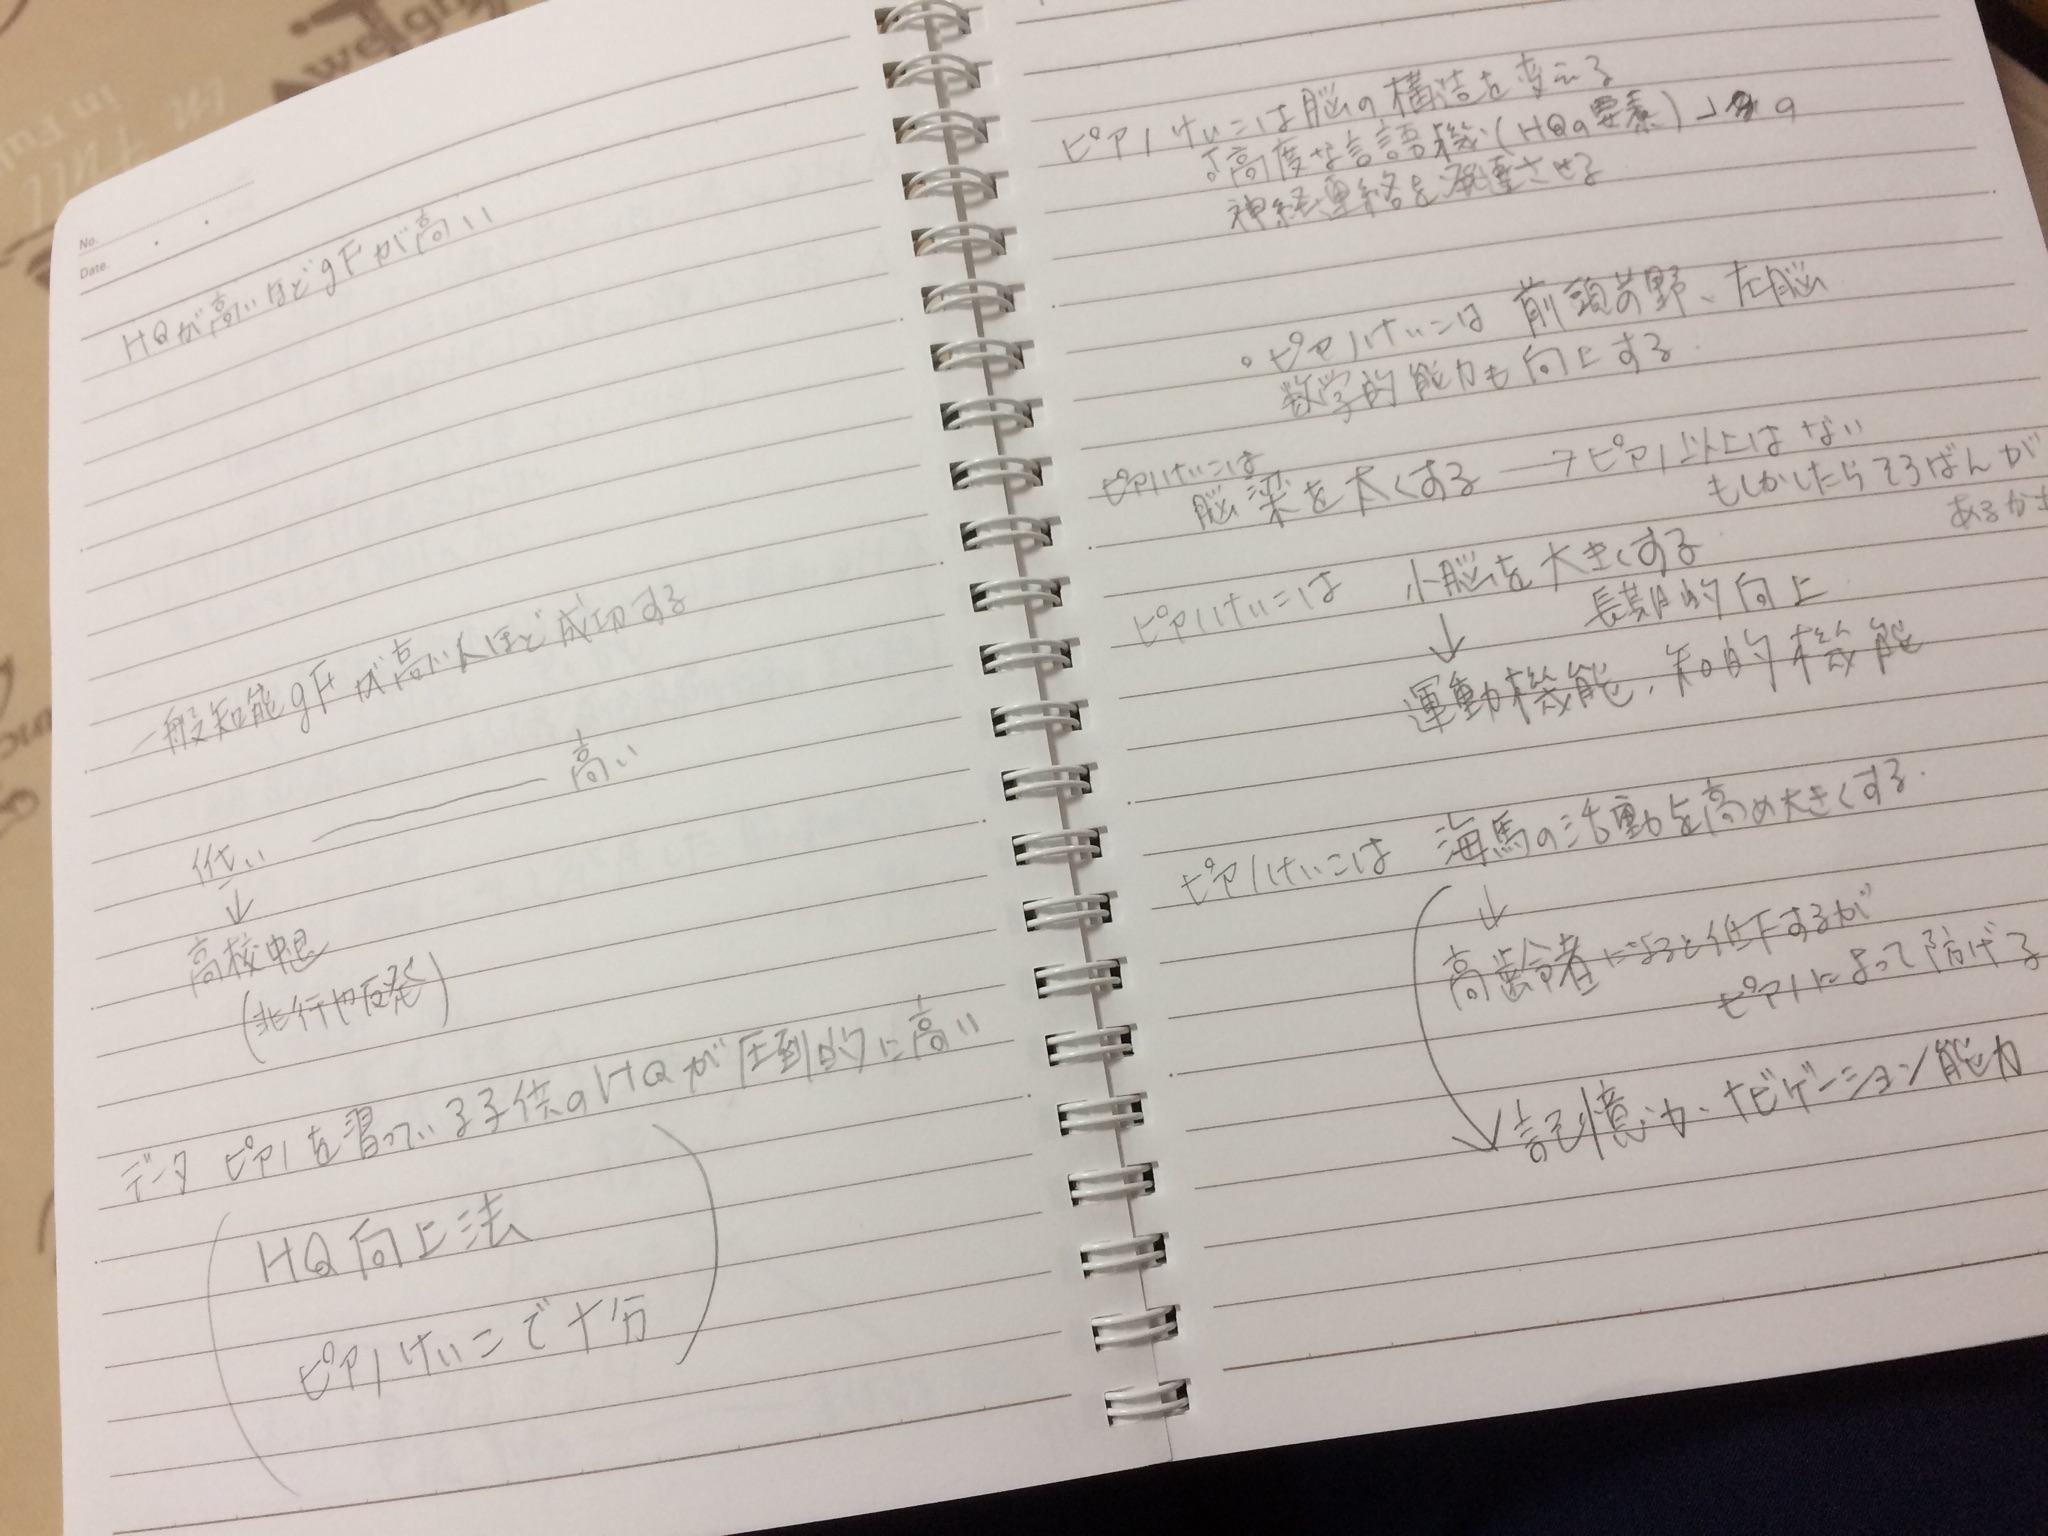 No.
Date.
HQが高いほどgFが高い
一般知能gFが高い人ほど成功する
低い 高い
↓
高校中退
(非行や反発)
データ ピアノを習っている子供のHQが圧倒的に高い
HQ向上法
ピアノけいこで十分
ピアノけいこは脳の構造を変える
高度な言語機(HQの要素)
神経連絡を発達させる
・ピアノけいこは 前頭前野、左脳
数学的能力も向上する
ピアノけいこは
脳梁を太くする → ピアノ以上はない
もしかしたらそろばんが
あるかも
ピアノけいこは 小脳を大きくする
↓ 長期的向上
運動機能、知的機能
ピアノけいこは 海馬の活動を高め大きくする.
↓
高齢者になると低下するが
ピアノによって防げる
記憶力、ナビゲーション能力
Aweigh